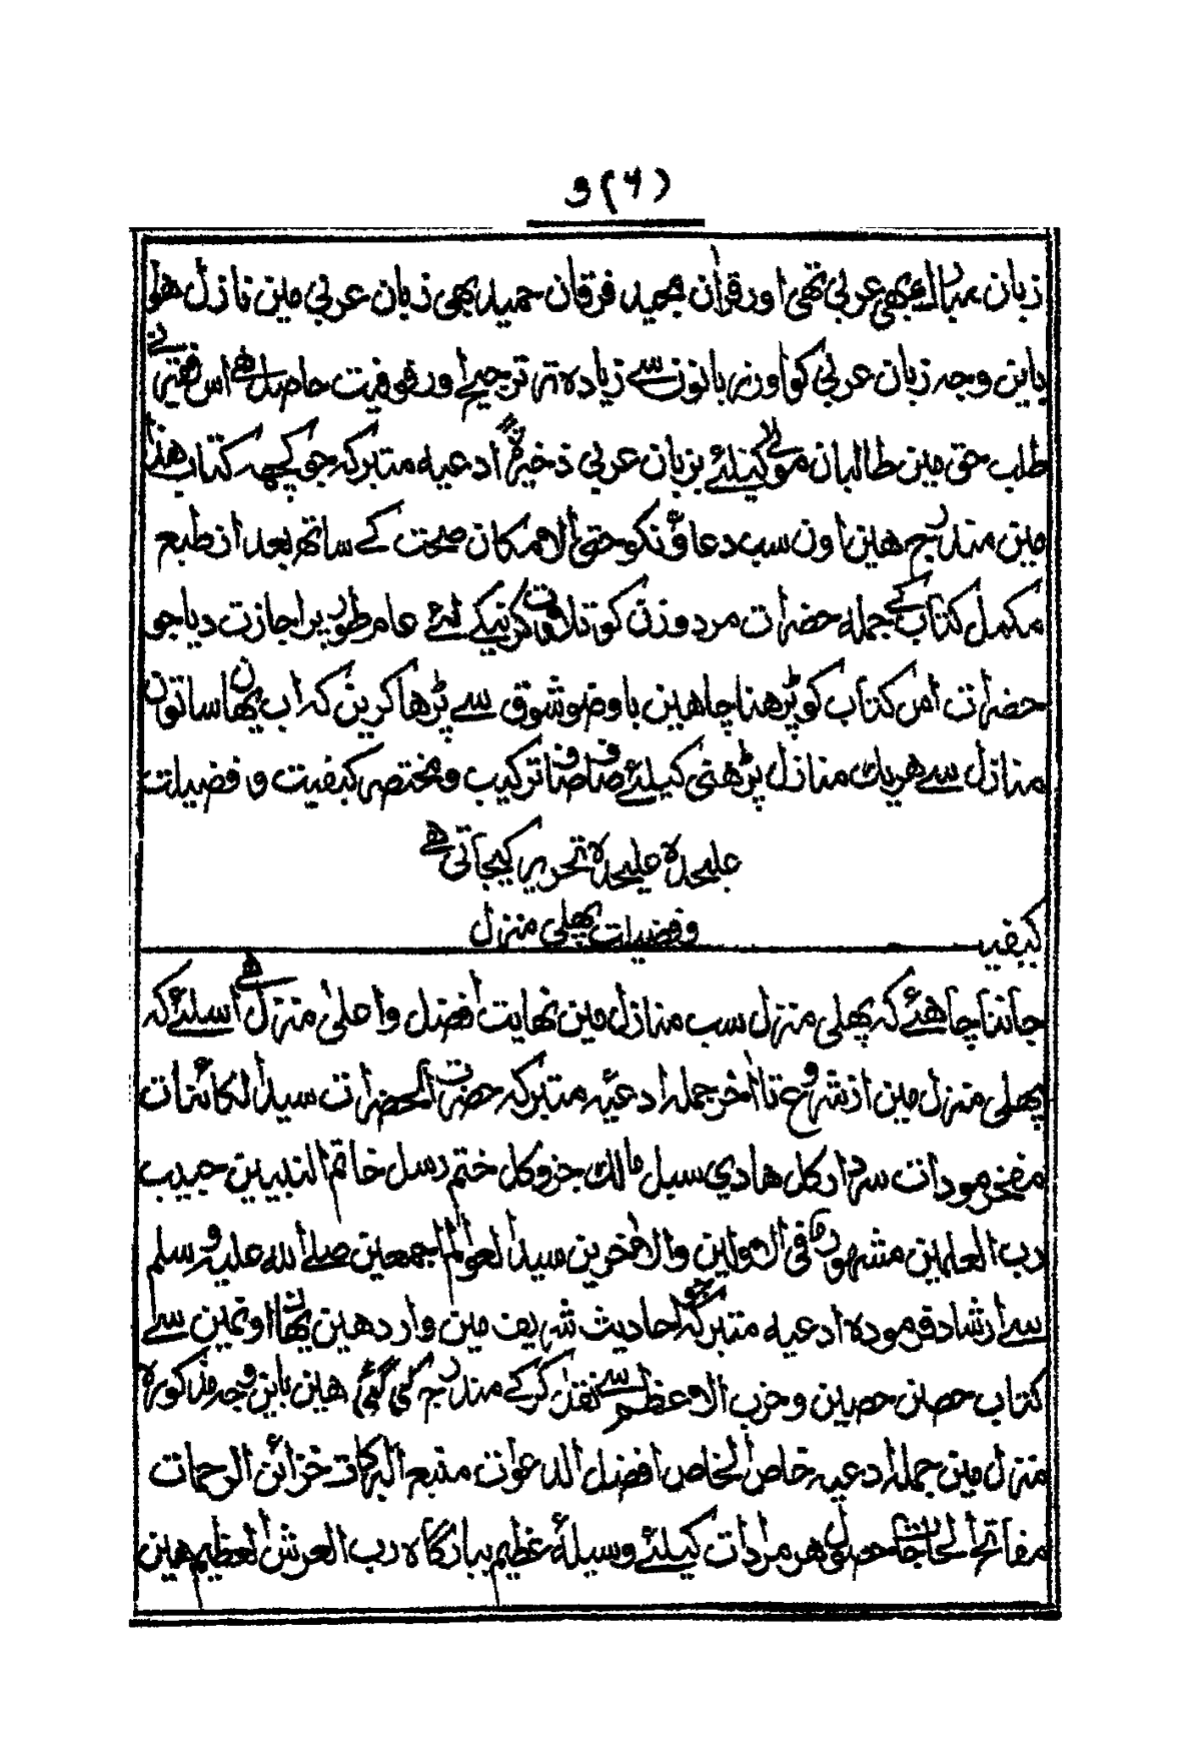 و (۶)
زبان مبارک بھی عربی تھی اور قرآن مجید فرقان حمید بھی زبان عربی مین نازل ھوا
باین وجہ زبان عربی کو اور زبانون سے زیادہ تر ترجیح اور فوقیت حاصل ھے اس فقیر نے
طلب حق مین طالبان مولی کیلئے بزبان عربی ذخیرہ ادعیہ متبرکہ جو کچھہ کتاب ھذا
مین مندرج ھین اون سب دعاؤنکو حتی الامکان صحت کے ساتھ بعد از طبع
مکمل کتاب کے جملہ حضرات مرد و زن کو تلاوت کرنیکے لئے عام طور پر اجازت دیا جو
حضرات اس کتاب کو پڑھنا چاھین باوضو شوق سے پڑھا کرین کہ اب یھان ساتون
منازل سے ھریک منازل پڑھنی کیلئے صاف صاف ترکیب و مختصر کیفیت و فضیلت
علیحدہ علیحدہ تحریر کیجاتی ھے
کیفیت و فضیلت پھلی منزل
جاننا چاھئے کہ پھلی منزل سب منازل مین نھایت افضل و اعلی منزل ھے اسلئے کہ
پھلی منزل مین از شروع تا آخر جملہ ادعیہ متبرکہ حضرت الحضرات سید الکائنات
مفخر موجودات سردار کل ھادی سبل مالک جز و کل ختم رسل خاتم النبیین حبیب
رب العلمین مشھور فی الاولین والاخرین سید العوالم اجمعین صلے اللہ علیہ و سلم
سے ارشاد فرمودہ ادعیہ متبرکہ جو احادیث شریف مین وارد ھین یھان اونمین سے
کتاب حصن حصین و حزب الاعظم سے نقل کر کے مندرج کی گئی ھین باین وجہ مذکورہ
منزل مین جملہ ادعیہ خاص الخاص افضل الدعوات منبع البرکات خزائن الرحمات
مفاتح الحاجات حصول ھر مرادات کیلئے وسیلۂ عظیم ببارگاہ رب العرش العظیم ھین